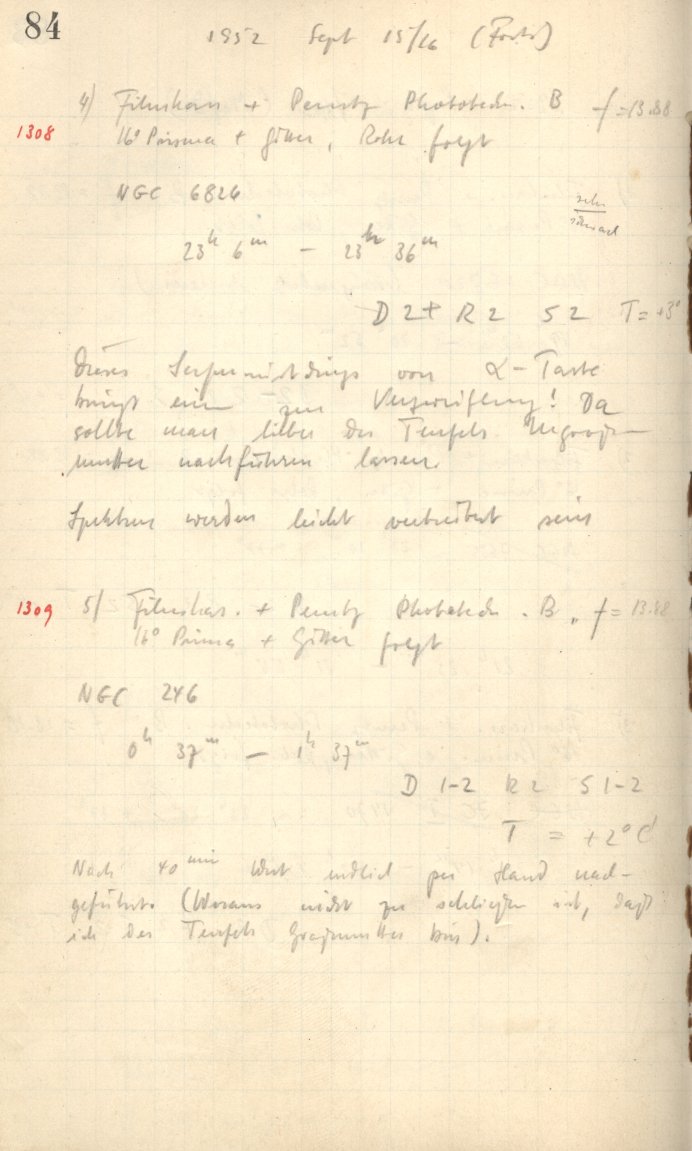 84
1952 Sept 15/16 (Forts)
4) Filmkam + Perutz Phototechn. B f = 13.88
1308
16° Prisma + Gitter, Rohr folgt
NGC 6826
sehr
schwach
23h 6m – 23h 36m
D 2+ R 2 S 2 T = +3°
Dieses dings von α-Taste
bringt einen zur Verzweiflung! Da
sollte man lieber des Teufels Urgroß-
mutter nachführen lassen.
Spektren werden leicht verbreitert sein
1309
5) Filmkam. + Perutz Phototechn. B, f = 13.88
16° Prisma + Gitter folgt
NGC 246
0h 37m – 1h 37m
D 1–2 R 2 S 1–2
T = +2°C
Nach 40 min endlich per Hand nach-
geführt. (Woraus nicht zu schließen ist, daß
ich des Teufels Großmutter bin).